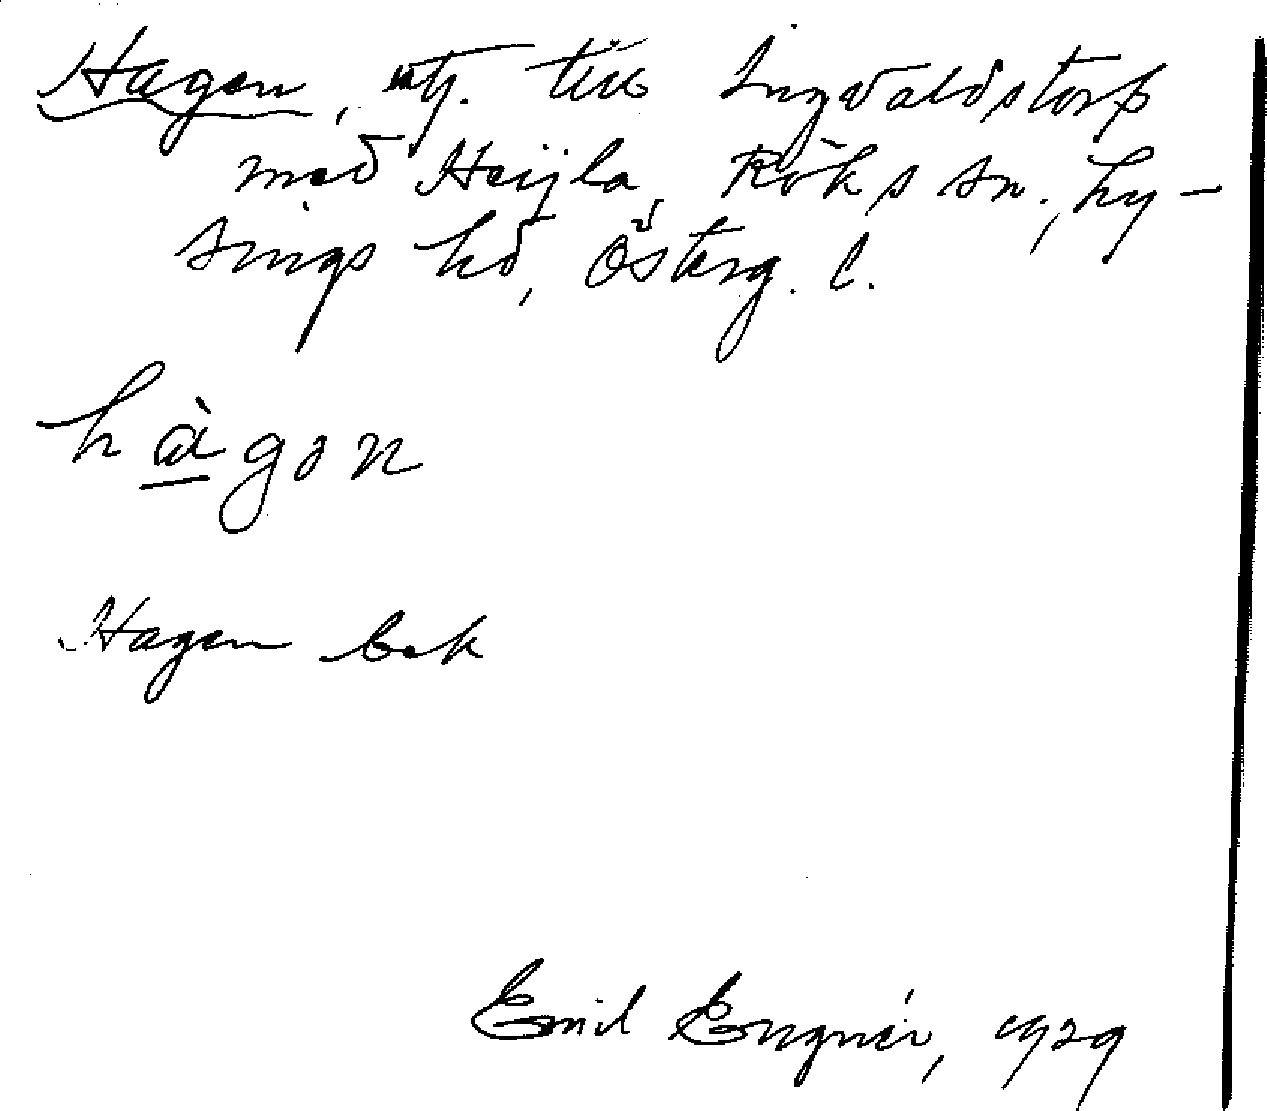 Hagen, utj. till Ingvaldstorp
med Heijla, Röks sn., Ly-
sings hd, Österg. l.
hàgɔn
Hagen bek
Emil Engnér, 1929